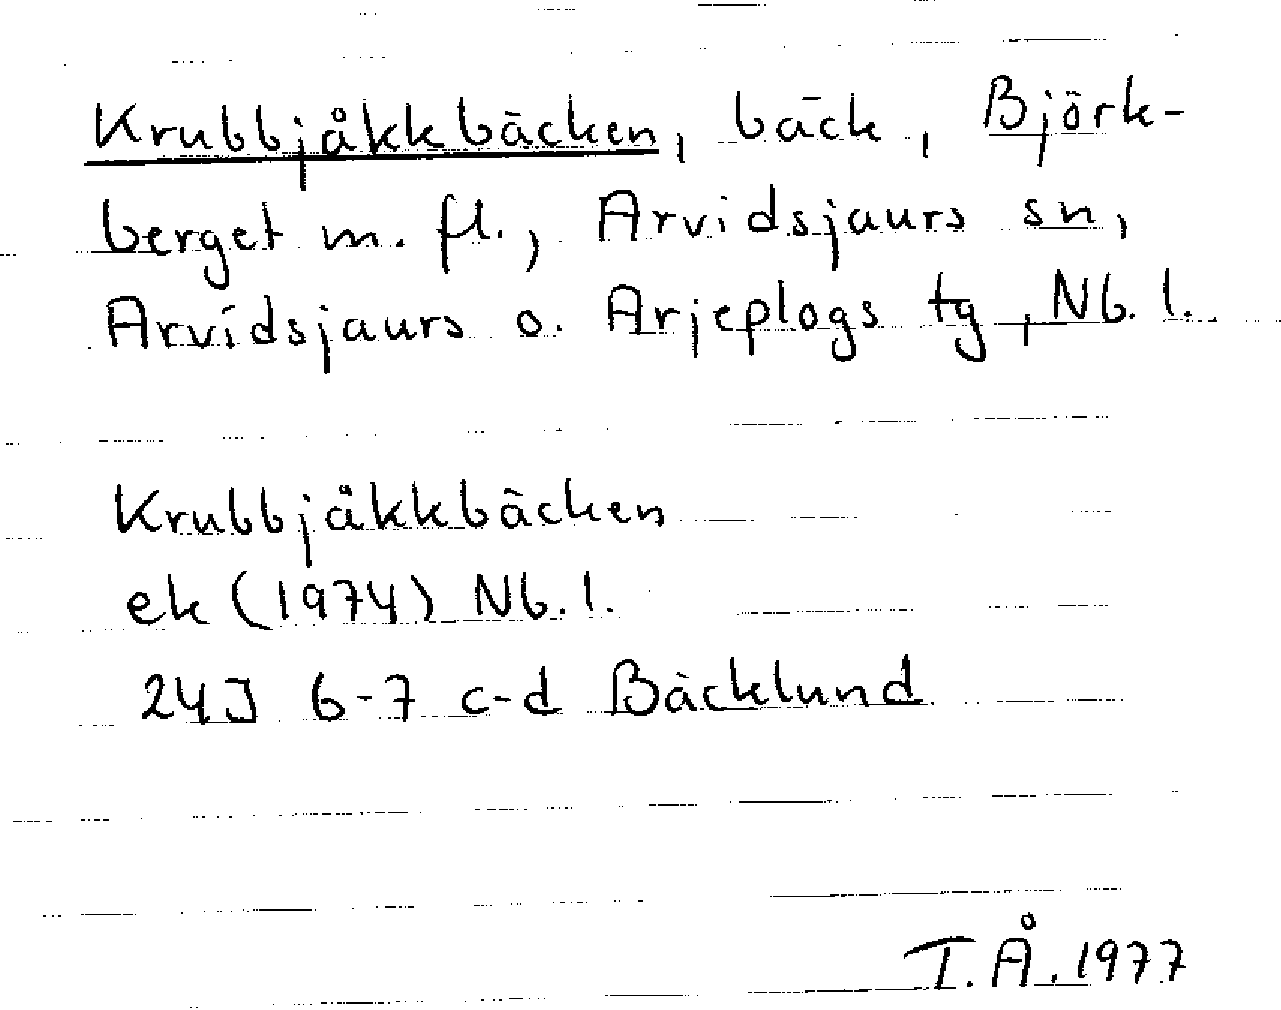 Krubbjåkkbäcken, bäck, Björk-
berget m. fl., Arvidsjaurs sn,
Arvidsjaurs o. Arjeplogs tg, Nb. l.
Krubbjåkkbäcken
ek (1974) Nb. l.
24J 6-7 c-d Bäcklund
T. Å. 1977